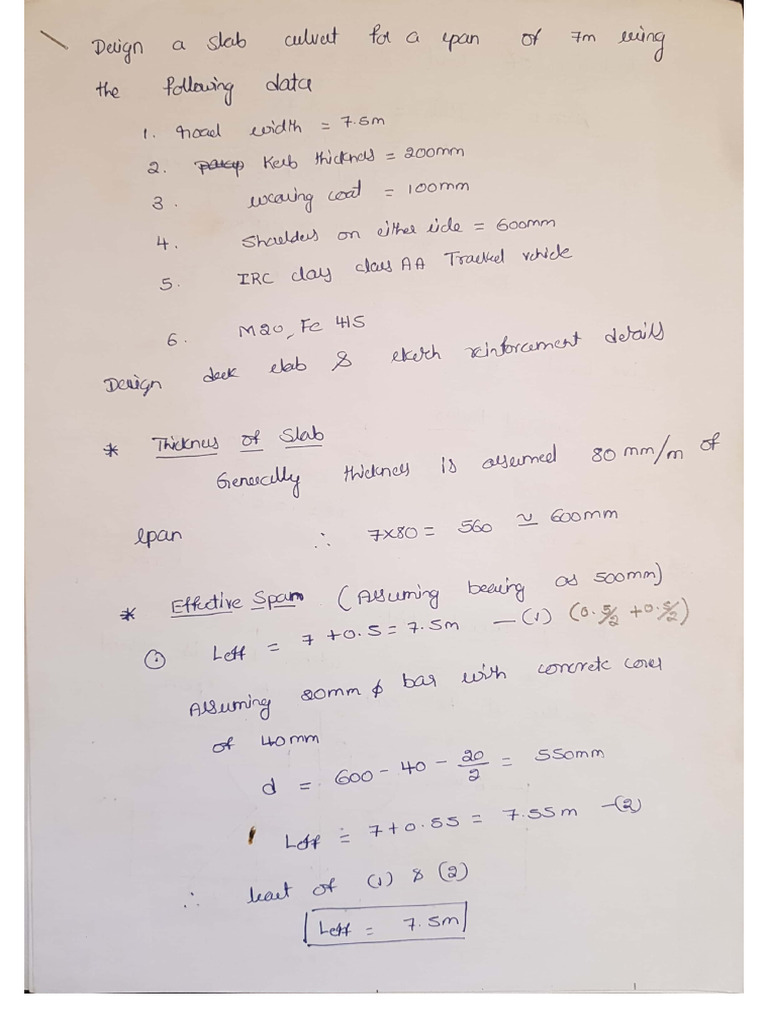 Design a slab culvert for a span of 7m using
the following data
1. Road width = 7.5m
2. Kerb thickness = 200mm
3. wearing coat = 100mm
4. Shoulders on either side = 600mm
5. IRC clay class AA Tracked vehicle
6. M20, Fe 415
Design deck slab & sketch reinforcement details
* Thickness of Slab
Generally thickness is assumed 80 mm/m of
span ∴ 7x80 = 560 ≃ 600mm
* Effective Span (Assuming bearing as 500mm)
① Leff = 7 + 0.5 = 7.5m — (1) (0.5/2 + 0.5/2)
Assuming 20mm ϕ bar with concrete cover
of 40mm
d = 600 - 40 - 20/2 = 550mm
Leff = 7 + 0.55 = 7.55m — (2)
∴ least of (1) & (2)
Leff = 7.5m